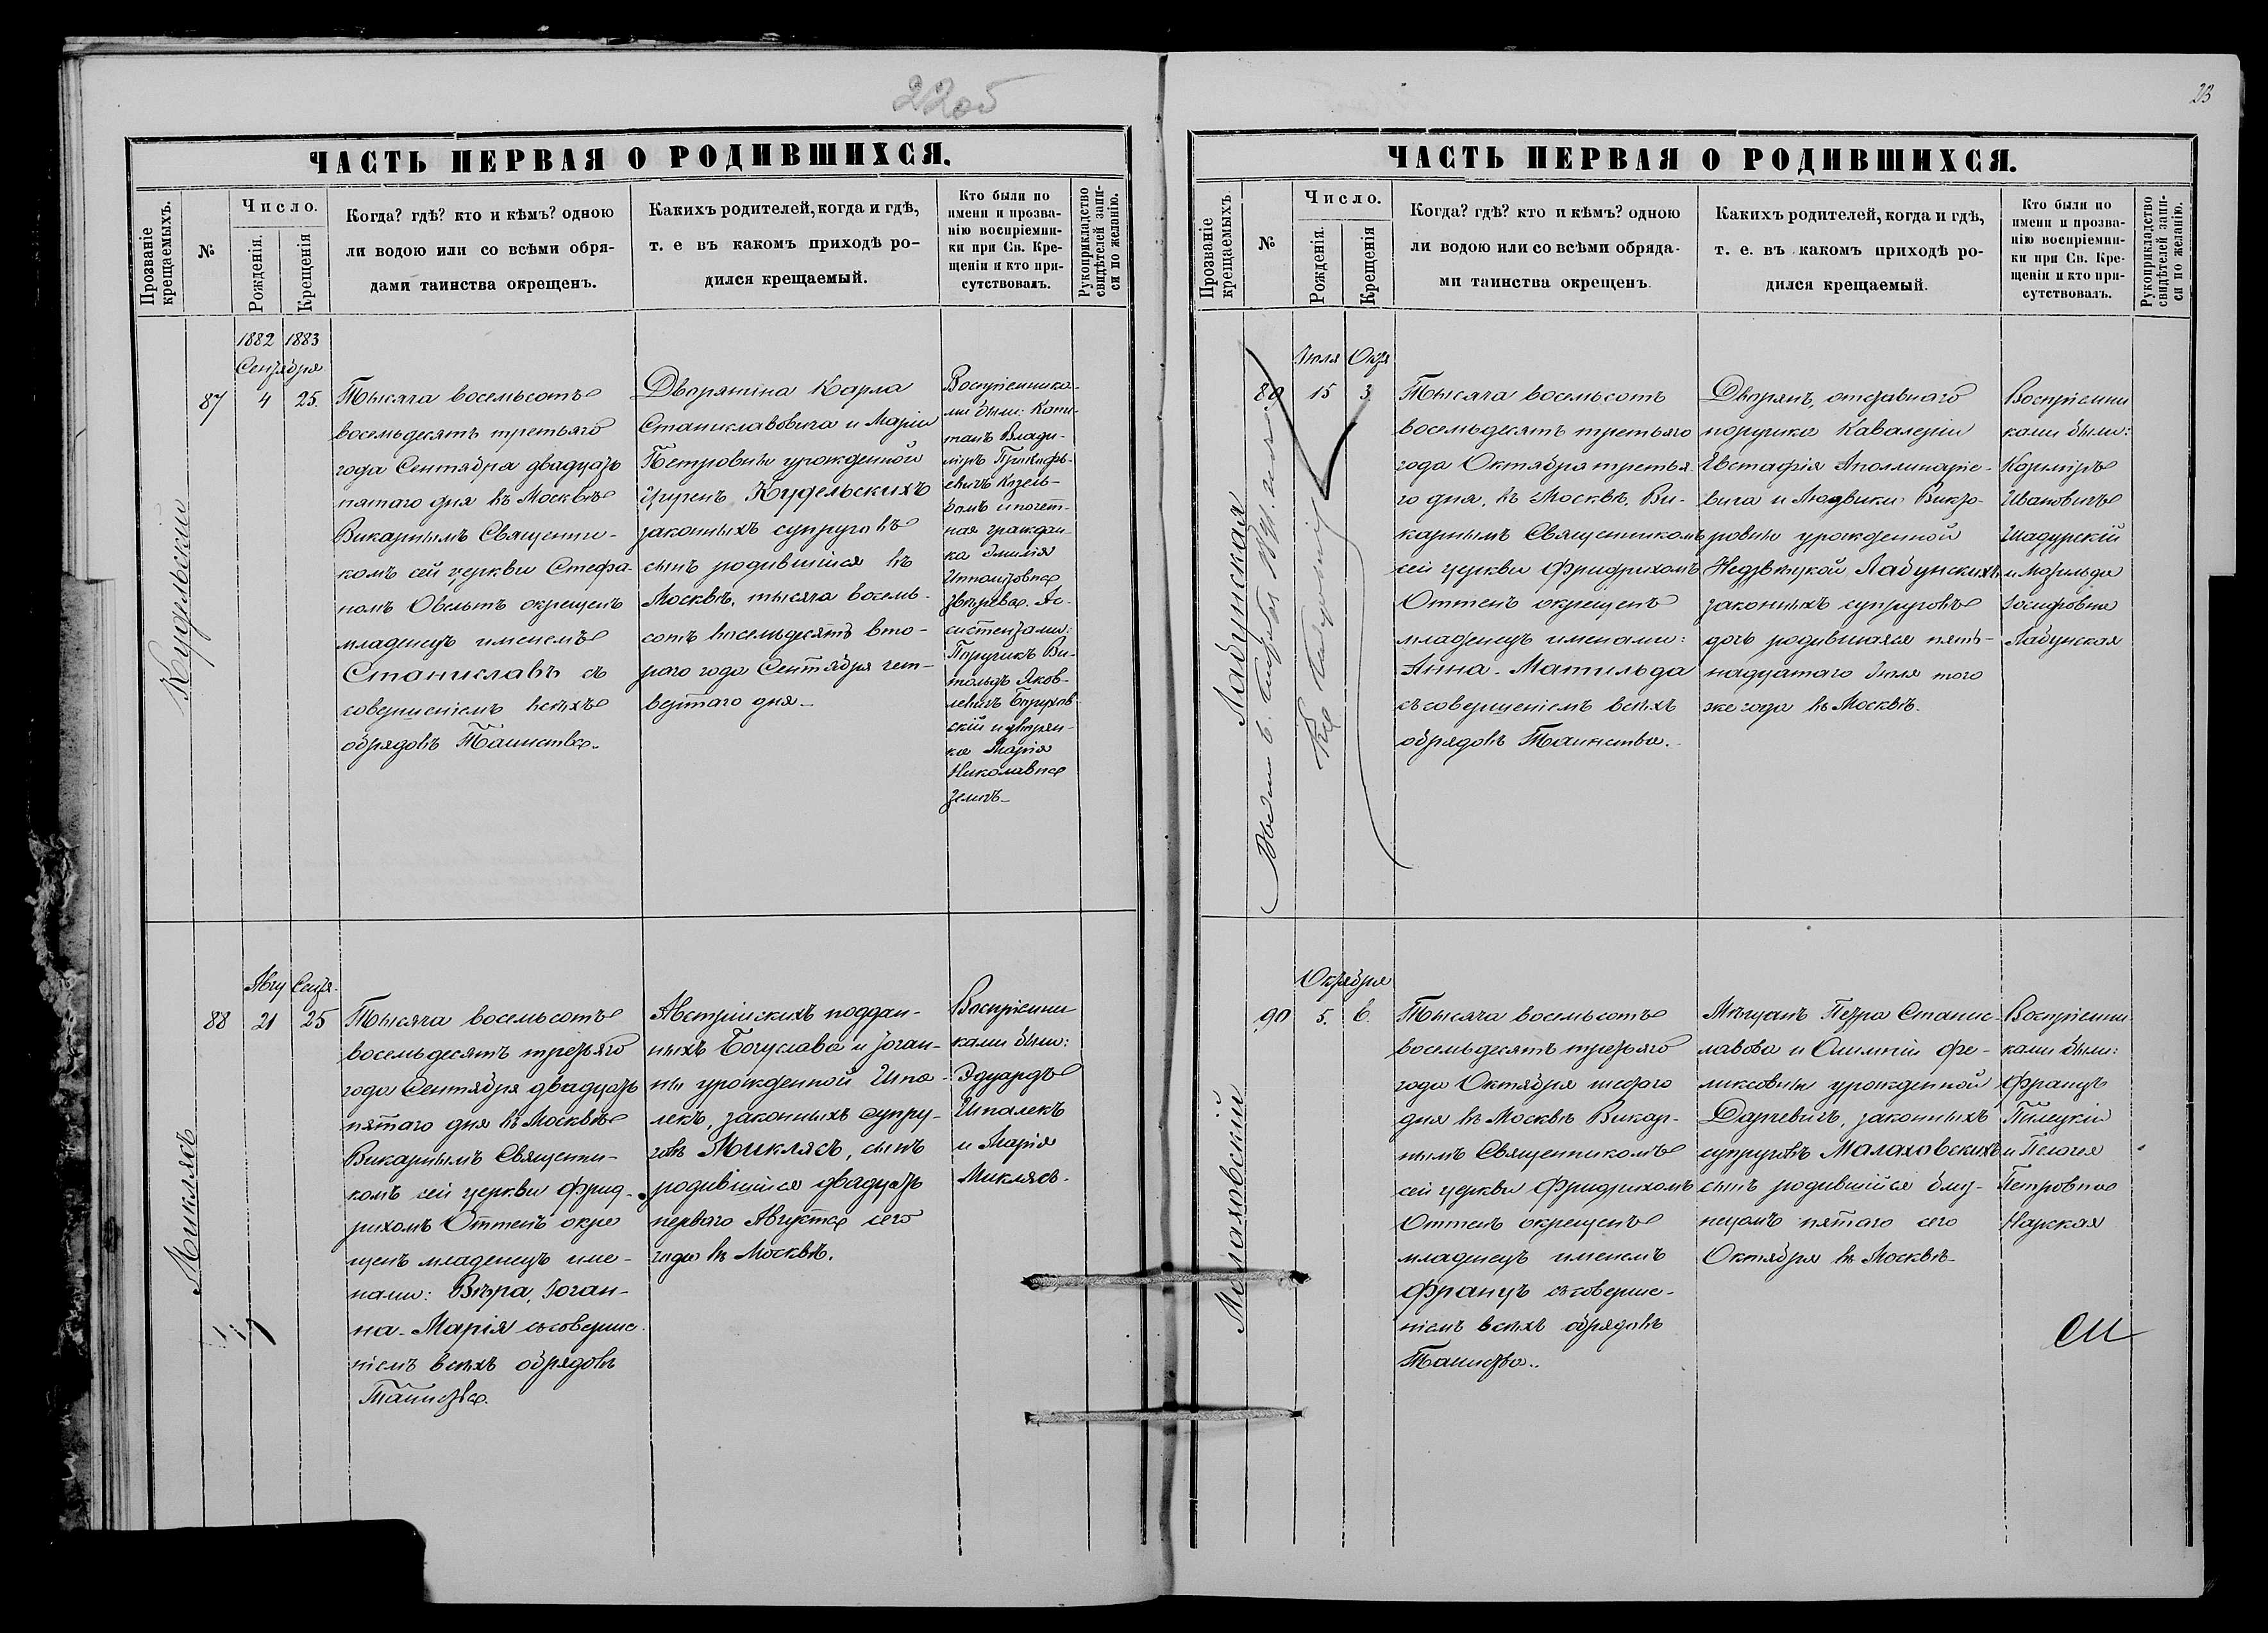 22об
ЧАСТЬ ПЕРВАЯ О РОДИВШИХСЯ.
Прозваніе крещаемыхъ.
№
Число.
Рожденія.
Крещенія
Когда? гдѣ? кто и кѣмъ? одною
ли водою или со всѣми обря-
дами таинства окрещенъ.
Какихъ родителей, когда и гдѣ,
т. е въ какомъ приходѣ ро-
дился крещаемый.
Кто были по
имени и прозва-
нію воспріемни-
ки при Св. Кре-
щеніи и кто при-
сутствовалъ.
Рукоприкладство
свидѣтелей запи-
си по желанію.
Кудельскій
1882 1883
Сентября
87 4 25.
Тысяча восемьсотъ
восемьдесятъ третьяго
года Сентября двадцать
пятаго дня въ Москвѣ
Викарнымъ Священни-
комъ сей церкви Стефа-
номъ Овельтъ окрещенъ
младенецъ именемъ
Станиславъ съ
совершеніемъ всѣхъ
обрядовъ Таинства.
Дворянина Карла
Станиславовича и Маріи
Петровны урожденной
Кудельскихъ
законныхъ супруговъ
сынъ родившійся въ
Москвѣ, тысяча восемь-
сотъ восемьдесятъ вто-
раго года Сентября чет-
вертаго дня.
Воспріемника-
ми были: Капи-
танъ Влади-
міръ
евичъ Козель-
и почет-
ная граждан-
ка Эмилія
Ипполитовна
Звѣрева. Ас-
систентами:
Поручикъ Ви-
тольдъ Яков-
левичъ
скій и дворян-
ка Марія
Николавна
Миклясъ
Авгу Сентя.
88 21 25
Тысяча восемьсотъ
восемьдесятъ третьяго
года Сентября двадцать
пятаго дня въ Москвѣ
Викарнымъ Священни-
комъ сей церкви Фрид-
рихомъ Оттенъ окре
щенъ младенецъ име-
нами: Вѣра, Іоган-
на-Марія съ соверше
ніемъ всѣхъ обрядовъ
Таинства.
Австрійскихъ поддан-
ныхъ Богуслава и Іоган-
ны урожденной Шпа-
лекъ, законныхъ супру-
говъ Миклясъ, сынъ
родившійся двадцать
перваго Августа сего
года въ Москвѣ.
Воспріемни
ками были:
Эдуардъ
Шпалекъ
и Марія
Миклясъ.
23
ЧАСТЬ ПЕРВАЯ О РОДИВШИХСЯ.
Прозваніе крещаемыхъ.
№
Число.
Рожденія.
Крещенія
Когда? гдѣ? кто и кѣмъ? одною
ли водою или со всѣми обряда-
ми таинства окрещенъ.
Какихъ родителей, когда и гдѣ,
т. е. въ какомъ приходѣ ро-
дился крещаемый.
Кто были по
имени и прозва-
нію воспріемни-
ки при Св. Кре-
щеніи и кто при-
сутствовалъ.
Рукоприкладство
свидѣтелей запи-
си по желанію.
Лабунская
Іюля Октя
89 15 3
Тысяча восемьсотъ
восемьдесятъ третьяго
года Октября третья
го дня, въ Москвѣ, Ви-
карнымъ Священникомъ
сей церкви Фридрихомъ
Оттенъ окрещенъ
младенецъ именами:
Анна-Матильда
съ совершеніемъ всѣхъ
обрядовъ Таинства.
Дворянъ, отставнаго
поручика Кавалеріи
Евстафія Аполлинаріе-
вича и Людвики Викто-
ровны урожденной
Недзвѣцкой Лабунскихъ
законныхъ супруговъ
дочь родившаяся пят-
надцатаго Іюля того
же года въ Москвѣ.
Воспріемни
ками были:
Козиміръ
Ивановичъ
Шадурскій
и Матильда
Іосифовна
Лабунская
Малаховскій
Октября
90 5. 6.
Тысяча восемьсотъ
восемьдесятъ третьяго
года Октября шестаго
дня въ Москвѣ Викар-
нымъ Священникомъ
сей церкви Фридрихомъ
Оттенъ окрещенъ
младенецъ именемъ
Францъ съ соверше-
ніемъ всѣхъ обрядовъ
Таинства.
Мѣщанъ Петра Станис-
лавова и Олимпіи Фе-
ликсовны урожденной
законныхъ
супруговъ Малаховскихъ
сынъ родившійся близ-
нецомъ пятаго сего
Октября въ Москвѣ
Воспріемни
ками были:
Францъ
Пилецкій
и Пелагея
Петровна
Нарская